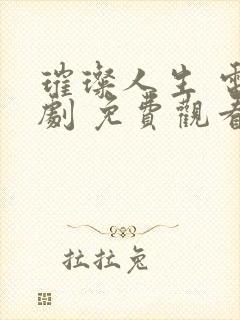 璀璨人生 電
劇 免費觀看
拉拉兔